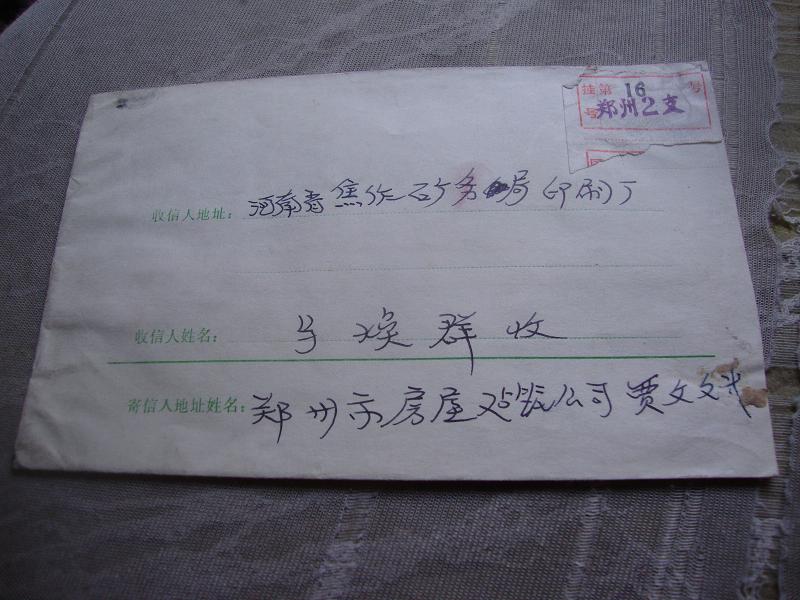 挂第 16 号
号 郑州2支
收信人地址：河南省焦作矿务局印刷厂
收信人姓名：焕群收
寄信人地址姓名：郑州市房屋公司贾文